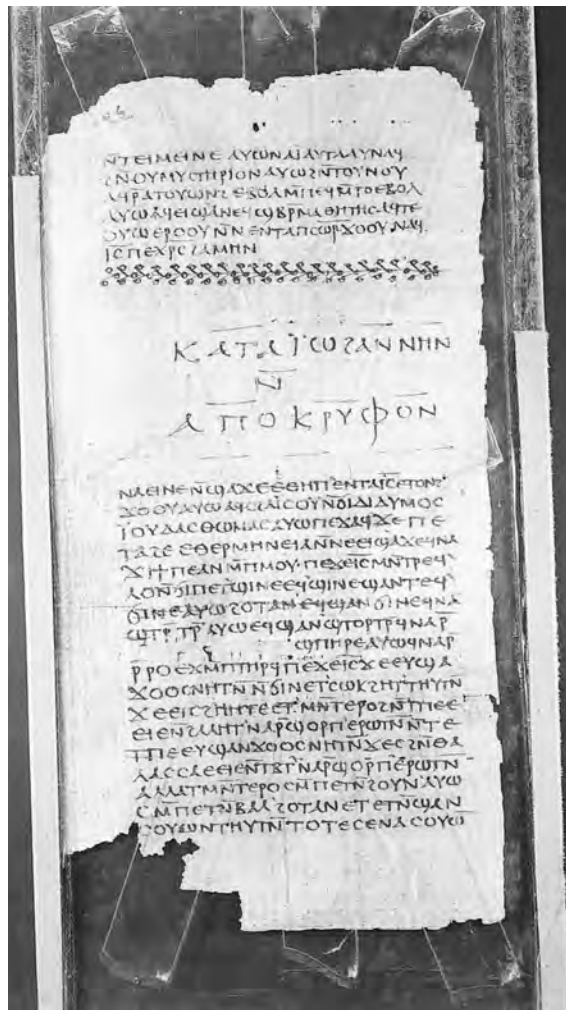 ⲛ̄ⲧⲉⲓⲙⲉⲓⲛⲉ ⲁⲩⲱ ⲛⲁⲓ̈ ⲁⲩⲧⲁⲁⲩ ⲛⲁϥ
ϩⲛⲟⲩⲙⲩⲥⲧⲏⲣⲓⲟⲛ ⲁⲩⲱ ϩⲛ̄ⲧⲟⲩⲛⲟⲩ
ⲁϥⲣ̄ⲁⲧⲟⲩⲱⲛϩ ⲉⲃⲟⲗ ⲙ̄ⲡⲉϥⲙ̄ⲧⲟ ⲉⲃⲟⲗ
ⲁⲩⲱ ⲁϥⲉⲓ ϣⲁⲛⲉϥϣⲃⲣ̄ⲙⲁⲑⲏⲧⲏⲥ ⲁϥⲧⲉ
ⲟⲩⲱ ⲉⲣⲟⲟⲩ ⲛ̄ⲛⲉⲛⲧⲁⲡⲥⲱⲣ ϫⲟⲟⲩ ⲛⲁϥ
ⲓ̄ⲥ̄ ⲡⲉⲭ̄ⲣ̄ⲥ̄ ϩⲁⲙⲏⲛ
ⲕⲁⲧⲁ ⲓ̈ⲱϩⲁⲛⲛⲏⲛ
ⲛ̄
ⲁⲡⲟⲕⲣⲩⲫⲟⲛ
ⲛⲁⲉⲓ ⲛⲉ ⲛ̄ϣⲁϫⲉ ⲉⲑⲏⲡ ⲉⲛⲧⲁⲓ̄ⲥ̄ ⲉⲧⲟⲛϩ
ϫⲟⲟⲩ ⲁⲩⲱ ⲁϥⲥϩⲁⲓ̈ⲥⲟⲩ ⲛ̄ϭⲓ ⲇⲓⲇⲩⲙⲟⲥ
ⲓ̈ⲟⲩⲇⲁⲥ ⲑⲱⲙⲁⲥ ⲁⲩⲱ ⲡⲉϫⲁϥ ϫⲉ ⲡⲉ
ⲧⲁϩⲉ ⲉⲑⲉⲣⲙⲏⲛⲉⲓⲁ ⲛ̄ⲛⲉⲉⲓϣⲁϫⲉ ϥⲛⲁ
ϫⲓ ϯⲡⲉ ⲁⲛ ⲙ̄ⲡⲙⲟⲩ ⲡⲉϫⲉ ⲓ̄ⲥ̄ ⲙⲛ̄ⲧⲣⲉϥ
ⲗⲟ ⲛ̄ϭⲓ ⲡⲉⲧϣⲓⲛⲉ ⲉϥϣⲓⲛⲉ ϣⲁⲛⲧⲉϥ
ϭⲓⲛⲉ ⲁⲩⲱ ϩⲟⲧⲁⲛ ⲉϥϣⲁⲛϭⲓⲛⲉ ϥⲛⲁ
ϣⲧⲣ̄ⲧⲣ̄ ⲁⲩⲱ ⲉϥϣⲁⲛϣⲧⲟⲣⲧⲣ̄ ϥⲛⲁⲣ̄
ϣⲡⲏⲣⲉ ⲁⲩⲱ ϥⲛⲁⲣ̄
ⲣ̄ⲣⲟ ⲉϫⲙ̄ ⲡⲧⲏⲣϥ ⲡⲉϫⲉ ⲓ̄ⲥ̄ ϫⲉ ⲉⲩϣⲁ
ϫⲟⲟⲥ ⲛⲏⲧⲛ̄ ⲛ̄ϭⲓ ⲛⲉⲧⲥⲱⲕ ϩⲏⲧⲧⲏⲩⲧⲛ̄
ϫⲉ ⲉⲓⲥϩⲏⲏⲧⲉ ⲉⲧⲙⲛ̄ⲧⲉⲣⲟ ϩⲛ̄ ⲧⲡⲉ ⲉ
ⲉⲓⲉ ⲛ̄ϩⲁⲗⲏⲧ ⲛⲁⲣ̄ϣⲟⲣⲡ ⲉⲣⲱⲧⲛ̄ ⲛ̄ⲧⲉ
ⲧⲡⲉ ⲉⲩϣⲁⲛϫⲟⲟⲥ ⲛⲏⲧⲛ̄ ϫⲉ ⲥϩⲛ̄ ⲑⲁ
ⲗⲁⲥⲥⲁ ⲉⲉⲓⲉ ⲛ̄ⲧⲃⲧ ⲛⲁⲣ̄ϣⲟⲣⲡ ⲉⲣⲱⲧⲛ̄
ⲁⲗⲗⲁ ⲧⲙⲛ̄ⲧⲉⲣⲟ ⲥⲙ̄ⲡⲉⲧⲛ̄ϩⲟⲩⲛ ⲁⲩⲱ
ⲥⲙ̄ⲡⲉⲧⲛ̄ⲃⲁⲗ ϩⲟⲧⲁⲛ ⲉⲧⲉⲧⲛ̄ϣⲁⲛ
ⲥⲟⲩⲱⲛ ⲧⲏⲩⲧⲛ̄ ⲧⲟⲧⲉ ⲥⲉⲛⲁⲥⲟⲩⲱ